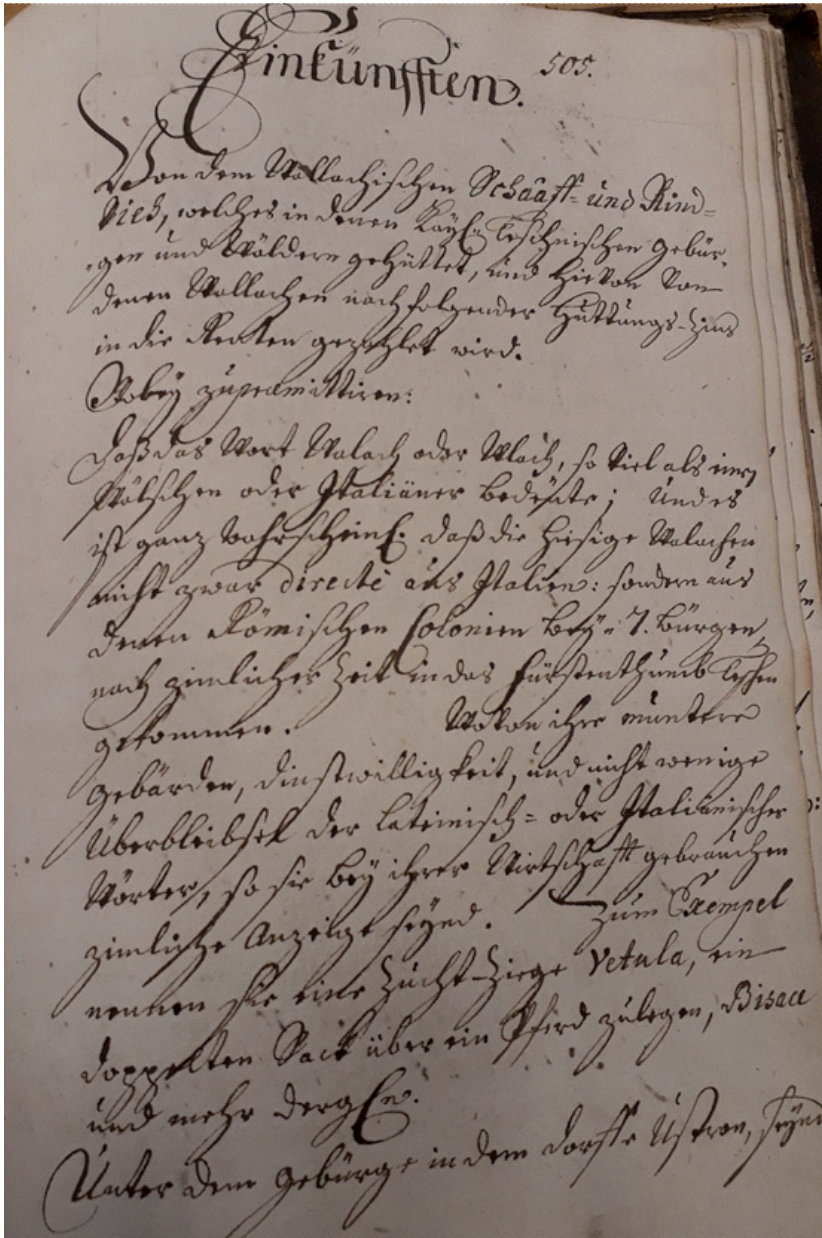 Einkünfften.
505.
Von dem Wallachischen Schaaff- und Rind-
Vieh, welches in denen Kayl: Teschnischen Gebür-
gen und Wäldern gehüttet, und hievon von
denen Wallachen nachfolgender Huttungs-Zins
in die Renten gezahlet wird.
Wobey zupraemittiren:
Daß das Wort Walach oder Wlach, so viel als einen
Wälschen oder Italiäner bedeute; Und es
ist ganz wahrscheinl: daß die hiesige Walachen
nicht zwar directè aus Italien: sondern aus
denen Römischen Colonien bey 7. Bürgen,
nach zimlicher Zeit in das Fürstenthumb Teschen
gekommen. Wovon ihre muntere
Gebärden, dinstwilligkeit, und nicht wenige
Überbleibsel der Lateinisch- oder Italiänischer
Wörter, so sie bey ihrer Wirtschafft gebrauchen
zimliche Anzeige seynd. Zum Exempel
nennen sie eine Zucht-Ziege Vetula, ein
doppelten Sack über ein Pferd zulegen, Bisace
und mehr dergln.
Unter dem Gebürge in dem Dorffe Ustron, seynd